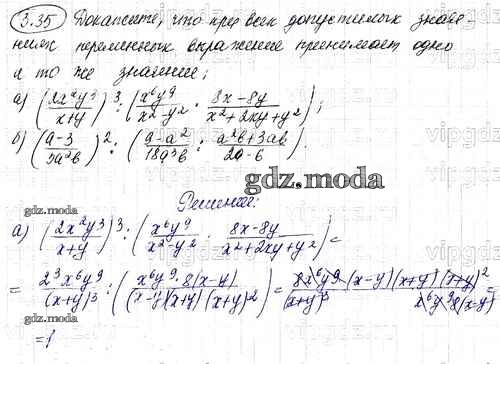 3.35 Докажите, что при всех допустимых значе-
ниях переменных выражение принимает одно
и то же значение;
а) (2x²y³/x+y)³ : (x⁶y⁹/x²-y² · 8x-8y/x²+2xy+y²);
б) (a-3/3a²b)² : (a-a²/18a³b : a²b+3ab/2a-6).
gdz.mozda
gdz.mozda
Решение:
а) (2x²y³/x+y)³ : (x⁶y⁹/x²-y² · 8x-8y/x²+2xy+y²) =
= 2³x⁶y⁹/(x+y)³ : (x⁶y⁹·8(x-y)/(x-y)(x+y)(x+y)²) = 8x⁶y⁹·(x-y)(x+y)(x+y)²/(x+y)³ x⁶y⁹8(x-y) =
=1